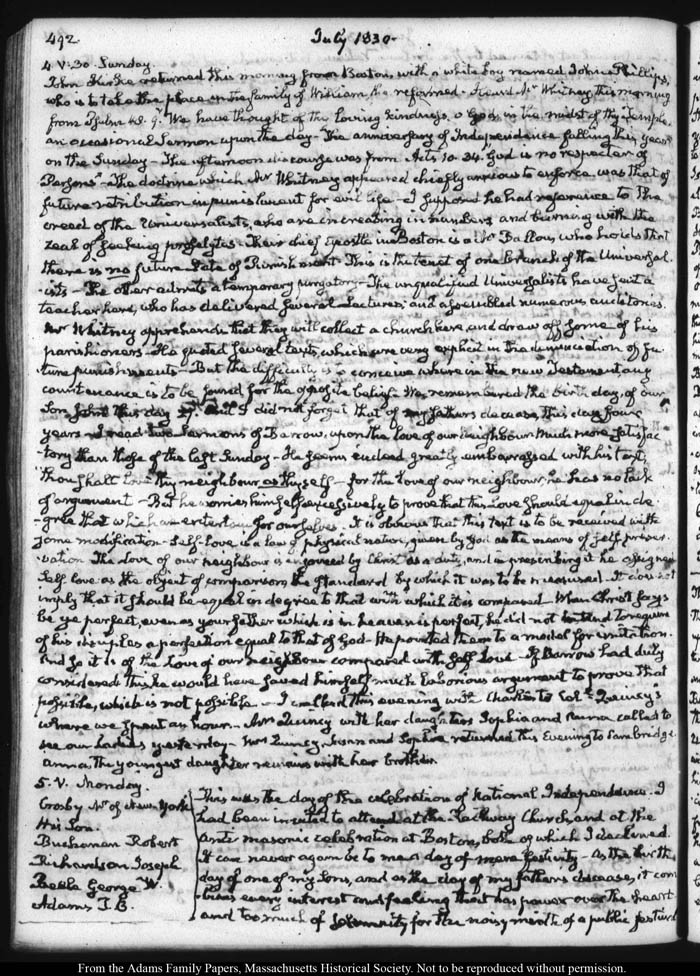 492.
July 1830.
4. V:30. Sunday.
John Kirke returned this morning from Boston, with a white boy named John Phillips,
who is to take the place in the family of William, the reformed. Heard Mr Whitney this morning
from Psalm 48. 9. We have thought of thy loving kindness, o God, in the midst of thy Temple.
an occasional Sermon upon the day. The anniversary of Independence falling this year
on the Sunday. The afternoon discourse was from Acts 10. 34. God is no respecter of
Persons" The doctrine which Mr Whitney appeared chiefly anxious to enforce was that of
future retribution in punishment for evil life. I suppose he had reference to the
creed of the Universalists, who are increasing in numbers and burning with the
zeal of seeking proselytes. Their chief Apostle in Boston is a Mr Ballou, who holds that
there is no future State of Punishment. This is the tenet of one branch of the Universal
-ists. The other admits a temporary purgatory. The unqualified Universalists have sent a
teacher here, who has delivered several Lectures, and assembled numerous auditories.
Mr Whitney apprehends that they will collect a church here, and draw off some of his
parishioners. He quoted several texts, which are very explicit in the denunciation of fu-
ture punishments. But the difficulty is to conceive where in the new Testament any
countenance is to be found for the opposite belief. We remembered the birth day, of our
Son John this day 27. And I did not forget that of my fathers decease, this day four
years. I read two Sermons of Barrow, upon the Love of our Neighbour much more satisfac
-tory than those of the last Sunday. He seems indeed greatly embarrassed with his text,
thou shalt love thy neighbour as thyself. for the Love of our neighbour, he has no lack
of argument. But he worries himself excessively to prove that this love should equal in de
-gree that which we entertain for ourselves. It is obvious that this text is to be received with
some modification. Self-Love is a law of physical nature, given by God as the means of self preser
-vation. The Love of our neighbour is enjoined by Christ as a duty, and in prescribing it he assigned
Self love as the object of comparison, the standard by which it was to be measured. It does not
imply that it should be equal in degree to that with which it is compared. When Christ says
be ye perfect, even as your father which is in heaven is perfect, he did not intend to require
of his disciples a perfection equal to that of God. He pointed them to a model for imitation.
And so it is of the Love of our neighbour compared with Self Love. If Barrow had duly
considered this, he would have saved himself much laborious argument to prove that
possible, which is not possible. I walked this evening with Charles to Col. Quincy's
where we spent an hour. Mrs Quincy with her daughters Sophia and Anna called to
see our Ladies yesterday. Mrs Quincy, Susan and Sophia returned this Evening to Cambridge.
anna, the youngest daughter remains with her brother.
5. V. Monday.
Crosby Mr of New York
His Son.
Buchanan Robert
Richardson Joseph
Beale George W.
Adams T. B.
This was the day of the celebration of National Independence. I
had been invited to attend at the Railway Church, and at the
anti-masonic celebration at Boston, both of which I declined.
It can never again be to me a day of mere festivity. As the birth
day of one of my Sons, and as the day of my fathers decease, it com
-bines every interest and feeling that has power over the heart
and too much of solemnity for the noisy mirth of a public festival
From the Adams Family Papers, Massachusetts Historical Society. Not to be reproduced without permission.